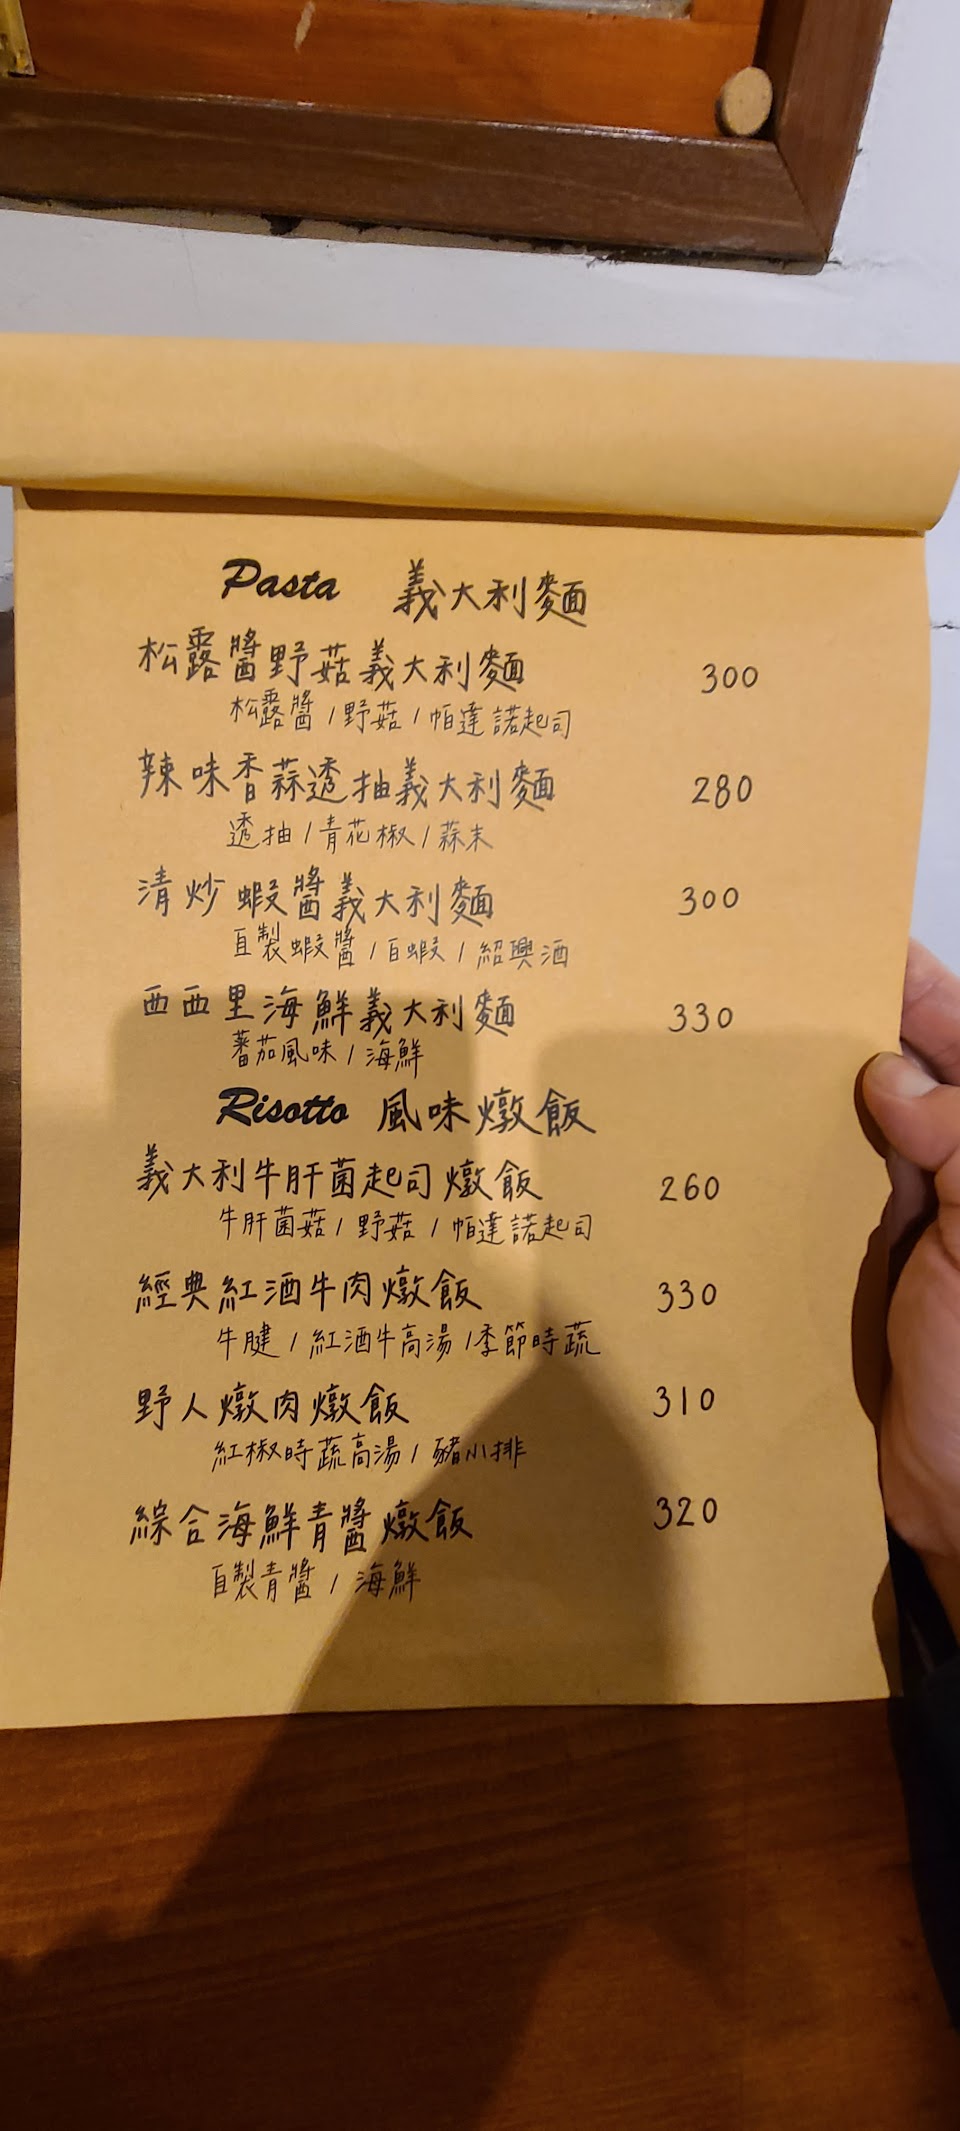 Pasta 義大利麵
松露醬野菇義大利麵 300
松露醬/野菇/帕達諾起司
辣味香蒜透抽義大利麵 280
透抽/青花椒/蒜末
清炒蝦醬義大利麵 300
自製蝦醬/白蝦/紹興酒
西西里海鮮義大利麵 330
蕃茄風味/海鮮
Risotto 風味燉飯
義大利牛肝菌起司燉飯 260
牛肝菌菇/野菇/帕達諾起司
經典紅酒牛肉燉飯 330
牛腱/紅酒牛高湯/季節時蔬
野人燉肉燉飯 310
紅椒時蔬高湯/豬小排
綜合海鮮青醬燉飯 320
自製青醬/海鮮